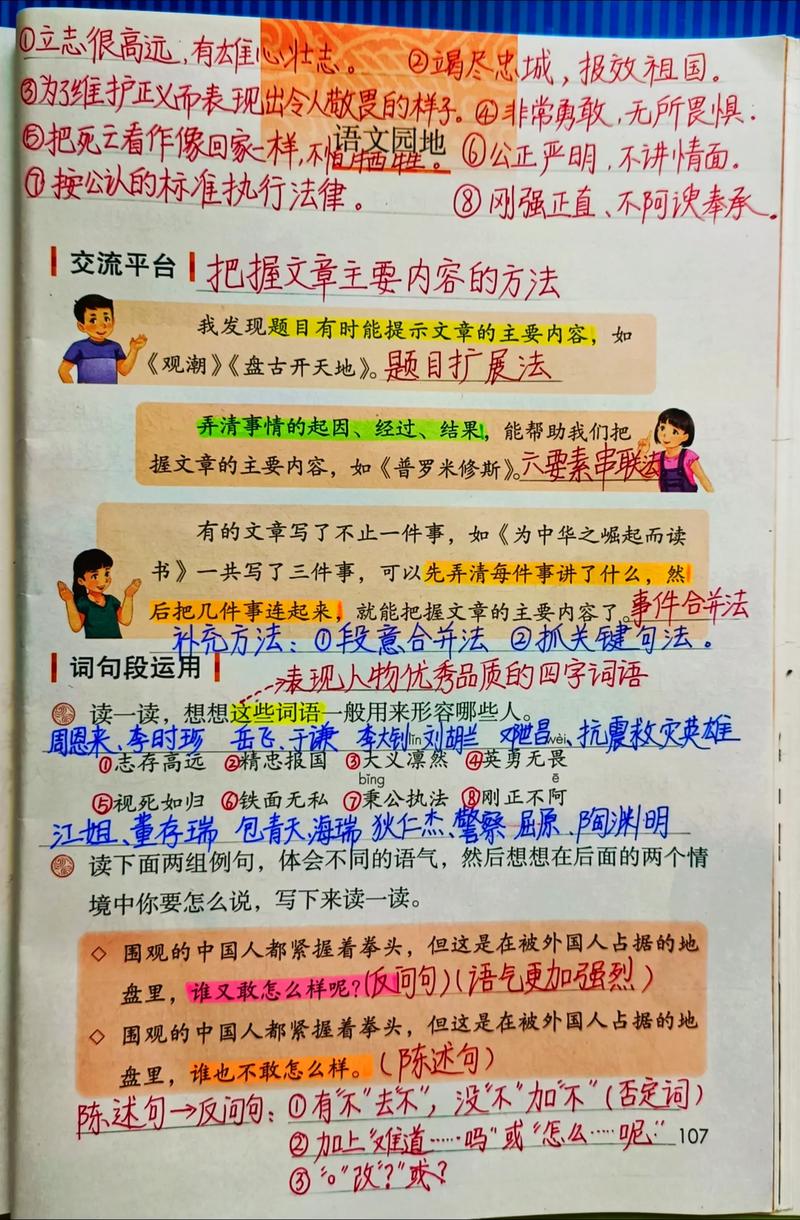 ①立志很高远，有雄心壮志。 ②竭尽忠城，报效祖国。
③为了维护正义而表现出令人敬畏的样子。④非常勇敢，无所畏惧.
⑤把死亡看作像回家一样，不怕牺牲。 ⑥公正严明，不讲情面.
语文园地
⑦按公认的标准执行法律。 ⑧刚强正直、不阿谀奉承。
交流平台 把握文章主要内容的方法
我发现题目有时能提示文章的主要内容，如
《观潮》《盘古开天地》。题目扩展法
弄清事情的起因、经过、结果，能帮助我们把
握文章的主要内容，如《普罗米修斯》。六要素串联法
有的文章写了不止一件事，如《为中华之崛起而读
书》一共写了三件事，可以先弄清每件事讲了什么，然
后把几件事连起来，就能把握文章的主要内容了。事件合并法
补充方法：①段意合并法 ②抓关键句法。
词句段运用 表现人物优秀品质的四字词语
读一读，想想这些词语一般用来形容哪些人。
周恩来、李时珍 岳飞、于谦 李大钊 刘胡兰 邓世昌、抗震救灾英雄
lǐn wèi
①志存高远 ②精忠报国 ③大义凛然 ④英勇无畏
bǐng ē
⑤视死如归 ⑥铁面无私 ⑦秉公执法 ⑧刚正不阿
江姐、董存瑞 包青天、海瑞 狄仁杰、警察 屈原、陶渊明
读下面两组例句，体会不同的语气，然后想想在后面的两个情
境中你要怎么说，写下来读一读。
◇ 围观的中国人都紧握着拳头，但这是在被外国人占据的地
盘里，谁又敢怎么样呢？(反问句)(语气更加强烈)
◇ 围观的中国人都紧握着拳头，但这是在被外国人占据的地
盘里，谁也不敢怎么样。(陈述句)
陈述句→反问句：①有“不”去“不”，没“不”加“不”(否定词)
②加上“难道……吗”或“怎么……呢”
107
③“。”改“？”或！